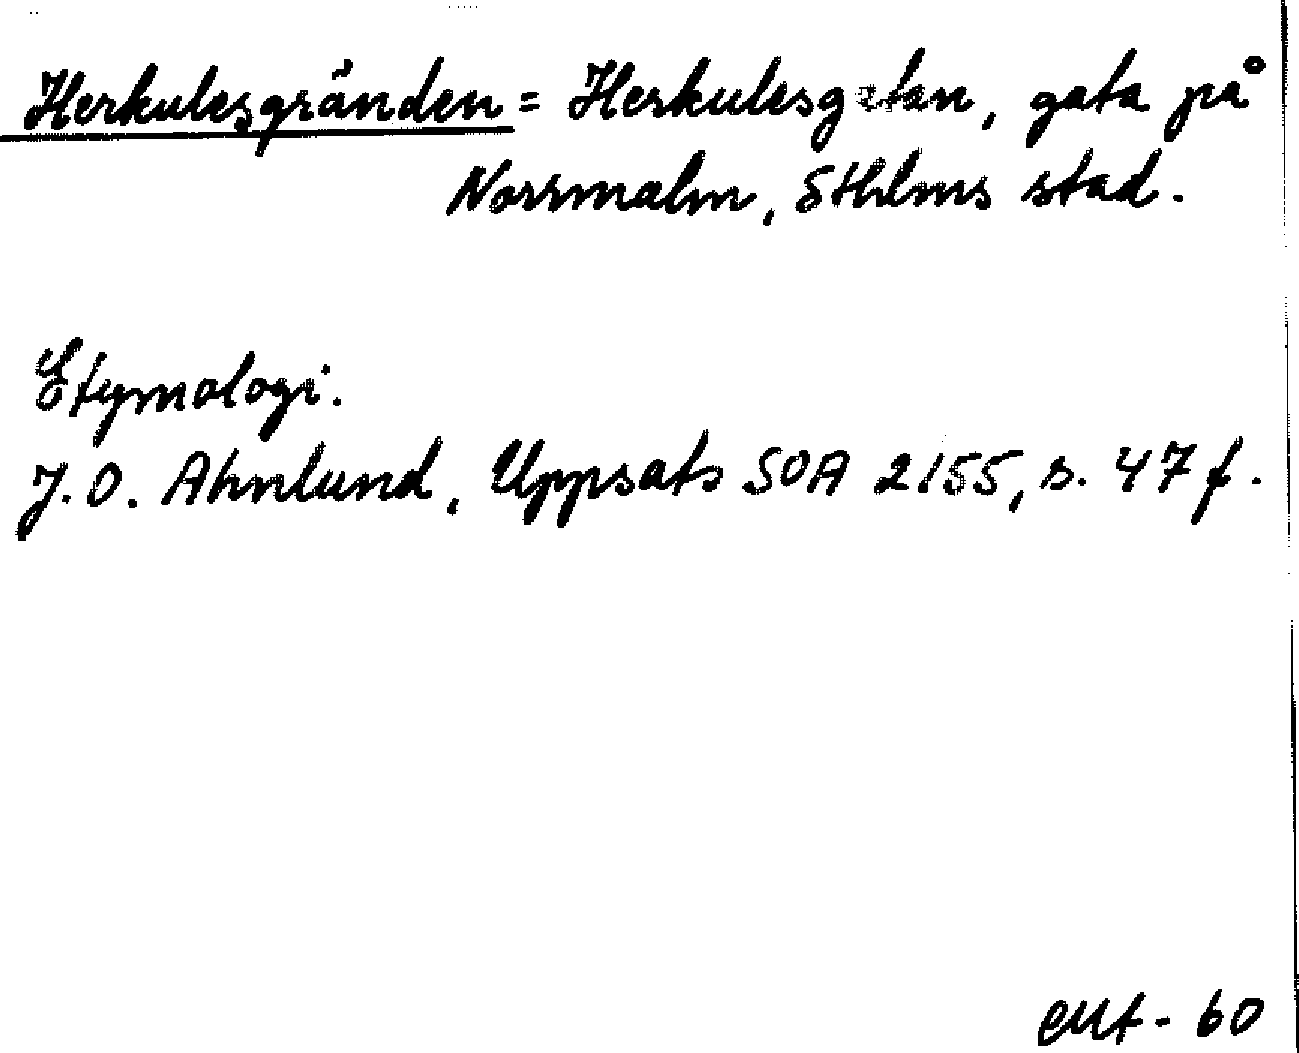 Herkulesgränden = Herkulesgatan, gata på
Norrmalm, Sthlms stad.
Etymologi.
J.O. Ahnlund, Uppsats SOA 2155, s. 47 f.
EMt - 60